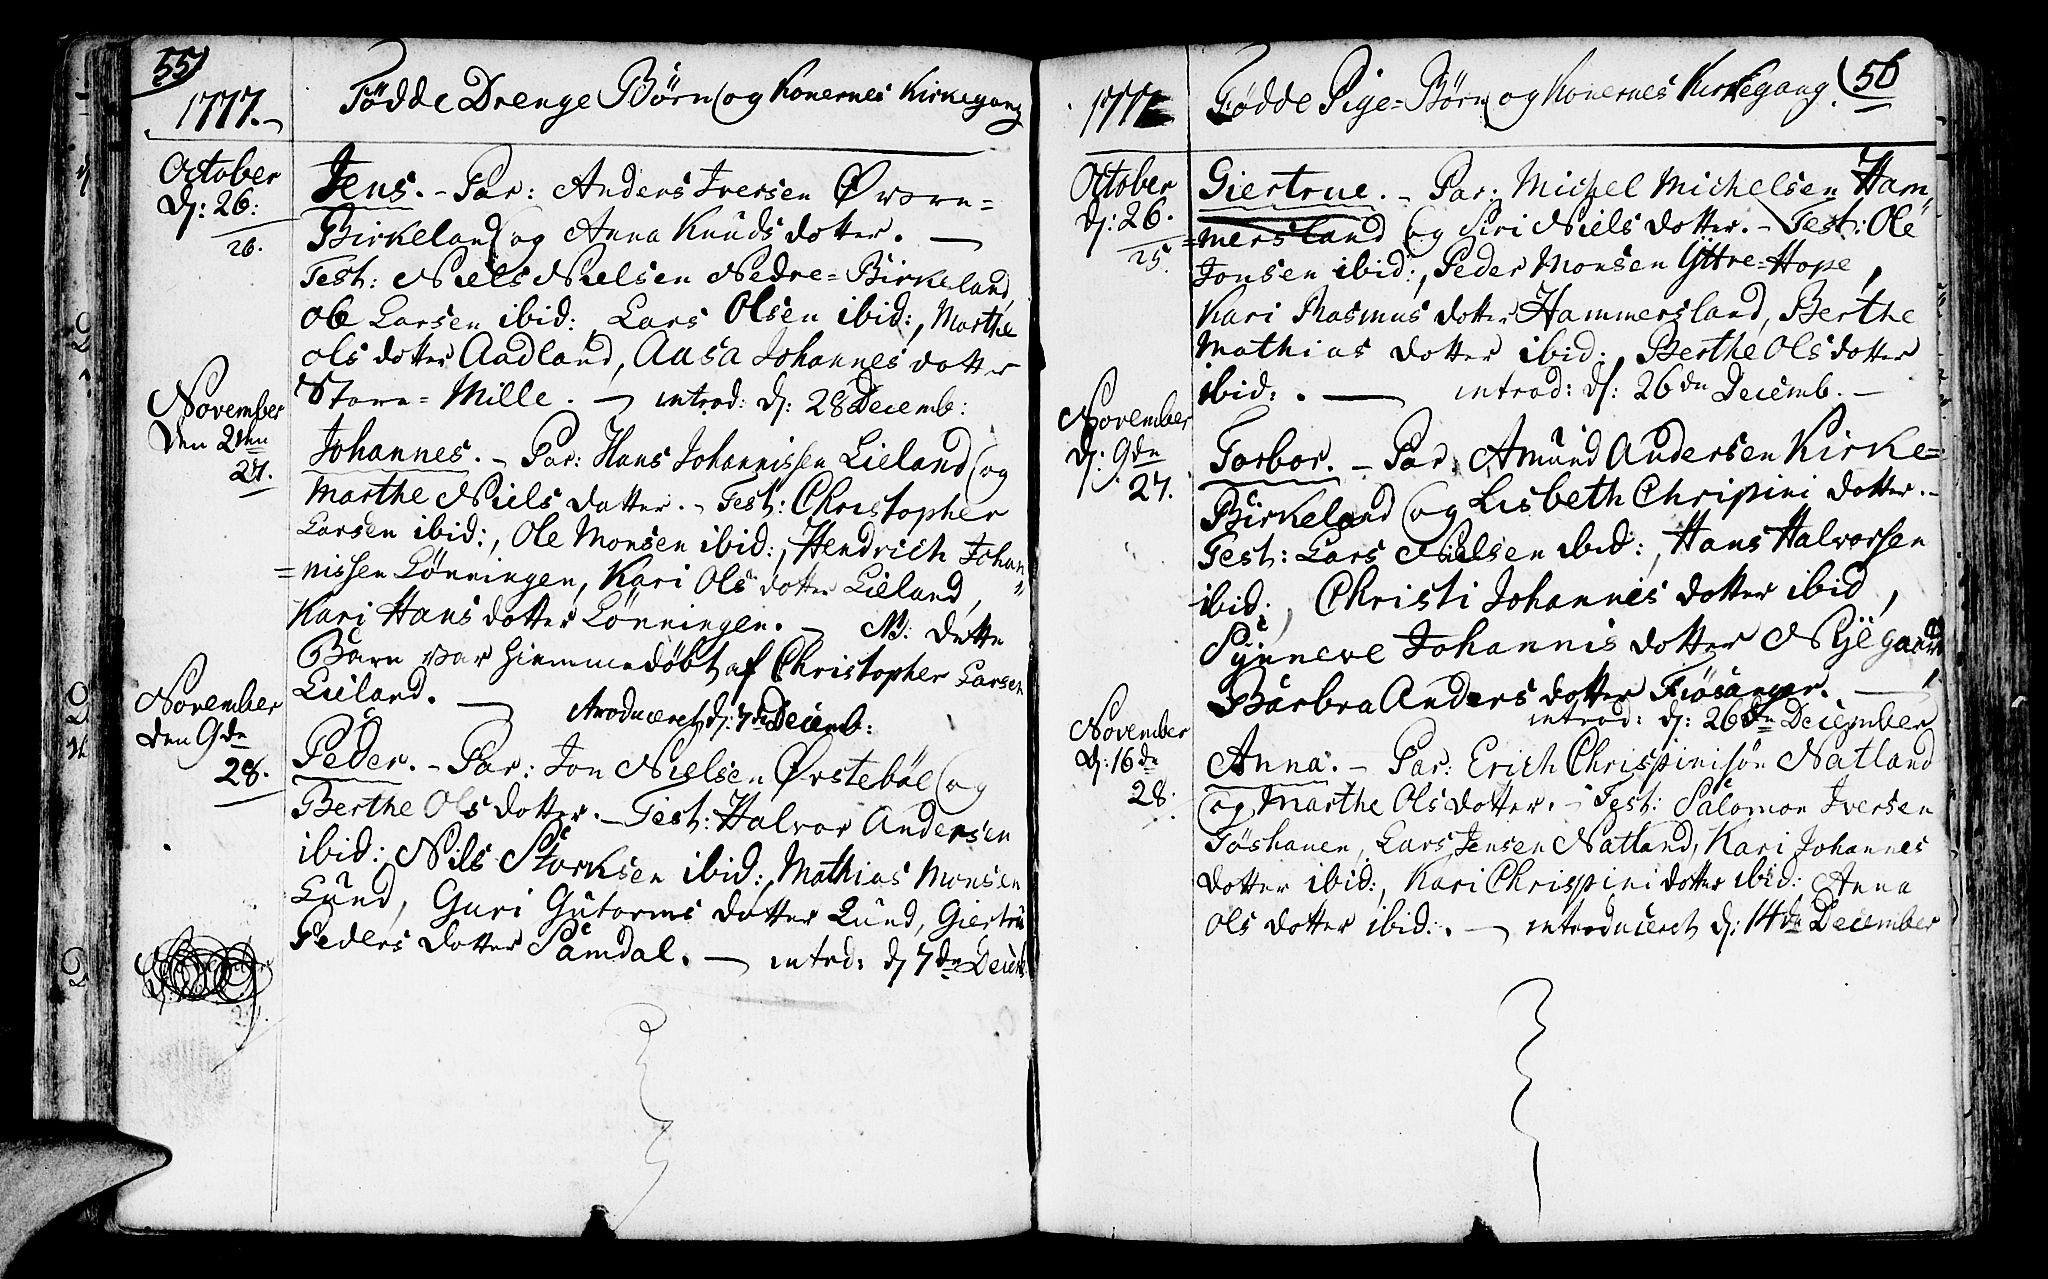 55)
1777.
Födde Drenge Börn og Konernes Kirkegang
October
D: 26:
26.
Jens. - Par: Anders Iversen Øvre=
Birkeland og Anna Knuds dotter. —
Test: Niels Nielsen Nedre=Birkeland,
Ole Larsen ibid:, Lars Olsen ibid:, Marthe
Ols dotter Aadland, Aasa Johannes dotter
Store=Mille. — introd: d: 28 Decemb:
November
Den 2den
27.
Johannes. - Par: Hans Johannissen Lieland og
Marthe Niels dotter. - Test: Christopher
Larsen ibid:, Ole Monsen ibid:, Hendrich Johan
=nissen Lönningen, Kari Ols dotter Lieland,
Kari Hans dotter Lönningen. — NB: dette
Barn var hiemmedöbt af Christopher Larsen
Lieland. — introduceret d: 7de Decemb:
November
Den 9de
28.
Peder. - Par: Jon Nielsen Örstebøe og
Berthe Ols dotter. - Test: Halvor Andersen
ibid: Nils Storksen ibid:, Mathias Monsen
Lund, Guri Gutorms dotter Lund, Giertru
Peders dotter Samdal. — introd: d 7de Decemb
(56
1777
Födde Pige=Börn og Konernes Kirkegang.
October
d: 26.
25.
Giertrue. - Par: Michel Michelsen Ham"
=mersland og Siri Niels dotter. - Test: Ole
Jonsen ibid:, Peder Monsen Yttre=Hope,
Kari Rasmus dotter Hammersland, Berthe
Mathias dotter ibid:, Berthe Ols dotter
ibid:. — introd: d: 26de Decemb. —
November
D: 9de
27.
Torbor. - Par: Amund Andersen Kirke=
Birkeland og Lisbeth Chrispini dotter. -
Test: Lars Nielsen ibid:, Hans Halvorsen
ibid:, Christi Johannis dotter ibid,
Synneve Johannis dotter Nyegaard,
Barbra Anders dotter Fiösanger. —
introd: d: 26de December
November
D: 16de
28.
Anna. - Par: Erich Chrispinisön Natland
og Marthe Ols dotter. - Test: Salomon Iversen
Töshauen, Lars Jensen Natland, Kari Johannes
dotter ibid:, Kari Chrispini dotter ibid: Anna
Ols dotter ibid:. — introduceret d: 14de December